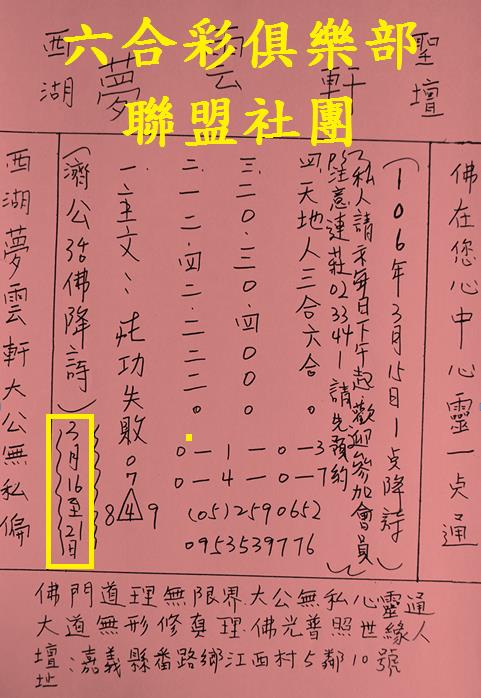 六合彩俱樂部
聯盟社團
聖壇
夢雲軒
西湖
佛在您心中心靈一点通
(106年3月15日1点降詩)
(私人請示每日下午起歡迎參加會員)
注意連莊02 33 44 1 請先預約
四.天地人三合六合。
三.二0.三0.四000。
二.二一二.四二.二二二。
一.主文:、功失敗
(濟公活佛降詩)
3月16至21日
西湖夢雲軒大公無私偏
0—1—0—3
0—4—0—7
07
8 4 9
(05)2590652
0953539776
佛門道理無限界.大公無私心靈通
大道無形修真理.佛光普照世緣人
壇址:嘉義縣番路鄉江西村5鄰10號